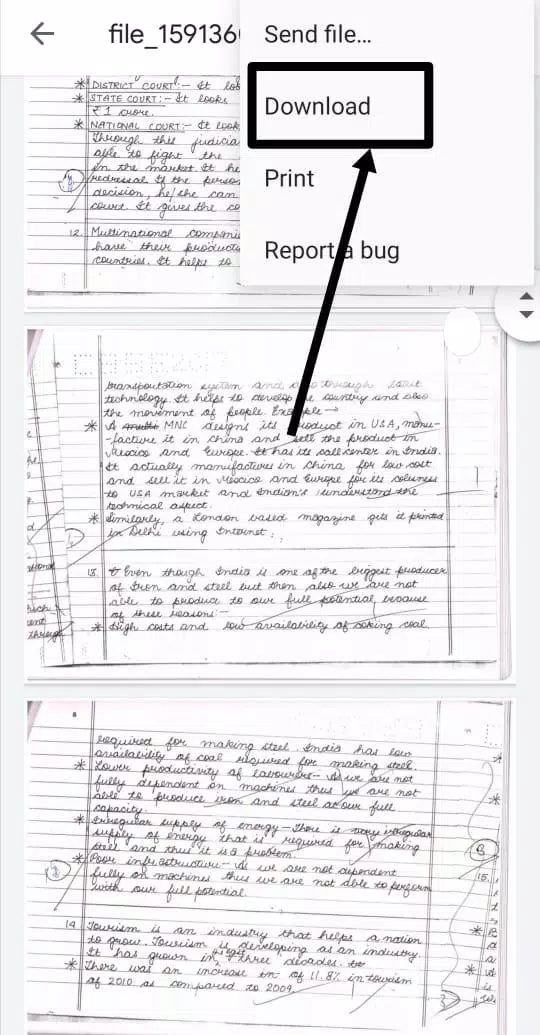 file_159136
Send file...
Download
Print
Report a bug
* DISTRICT COURT:- It loo
* STATE COURT:- It looks
₹1 crore.
* NATIONAL COURT:- It look
Through this judicia
able to fight the
in the market. It he
redressal. If the perso
decision, he/she can
court. It gives the co
12. Multinational compani
have their producti
countries. It helps to
transportation system and also through latest
technology. It helps to develop the country and also
the movement of people. Example →
* A multi MNC designs its product in USA, manu-
-facture it in china and sell the product in
Mexico and Europe. It has its call center in India.
It actually manufactures in China for low cost
and sell it in Mexico and Europe for its closness
to USA market and Indian's understand the
technical aspect.
* Similarly, a London based magazine gets it printed
in Delhi using Internet.
13. Even though India is one of the biggest producer
of Iron and steel but then also we are not
able to produce to our full potential because
of these reasons:-
* High costs and low availability of coking coal
8
required for making steel. India has low
availability of coal required for making steel.
* Lower productivity of labourers- As we are not
fully dependent on machines thus we are not
able to produce iron and steel at our full
capacity.
* Irregular supply of energy - There is very irregular
supply of energy that is required for making
steel and thus it is a problem.
* Poor infrastructure- As we are not dependent
fully on machines thus we are not able to perform
with our full potential.
15.
14. Tourism is an industry that helps a nation
to grow. Tourism is developing as an industry.
It has grown in the last three decades.
* There was an increase in of 11.8% in tourism
of 2010 as compared to 2009.